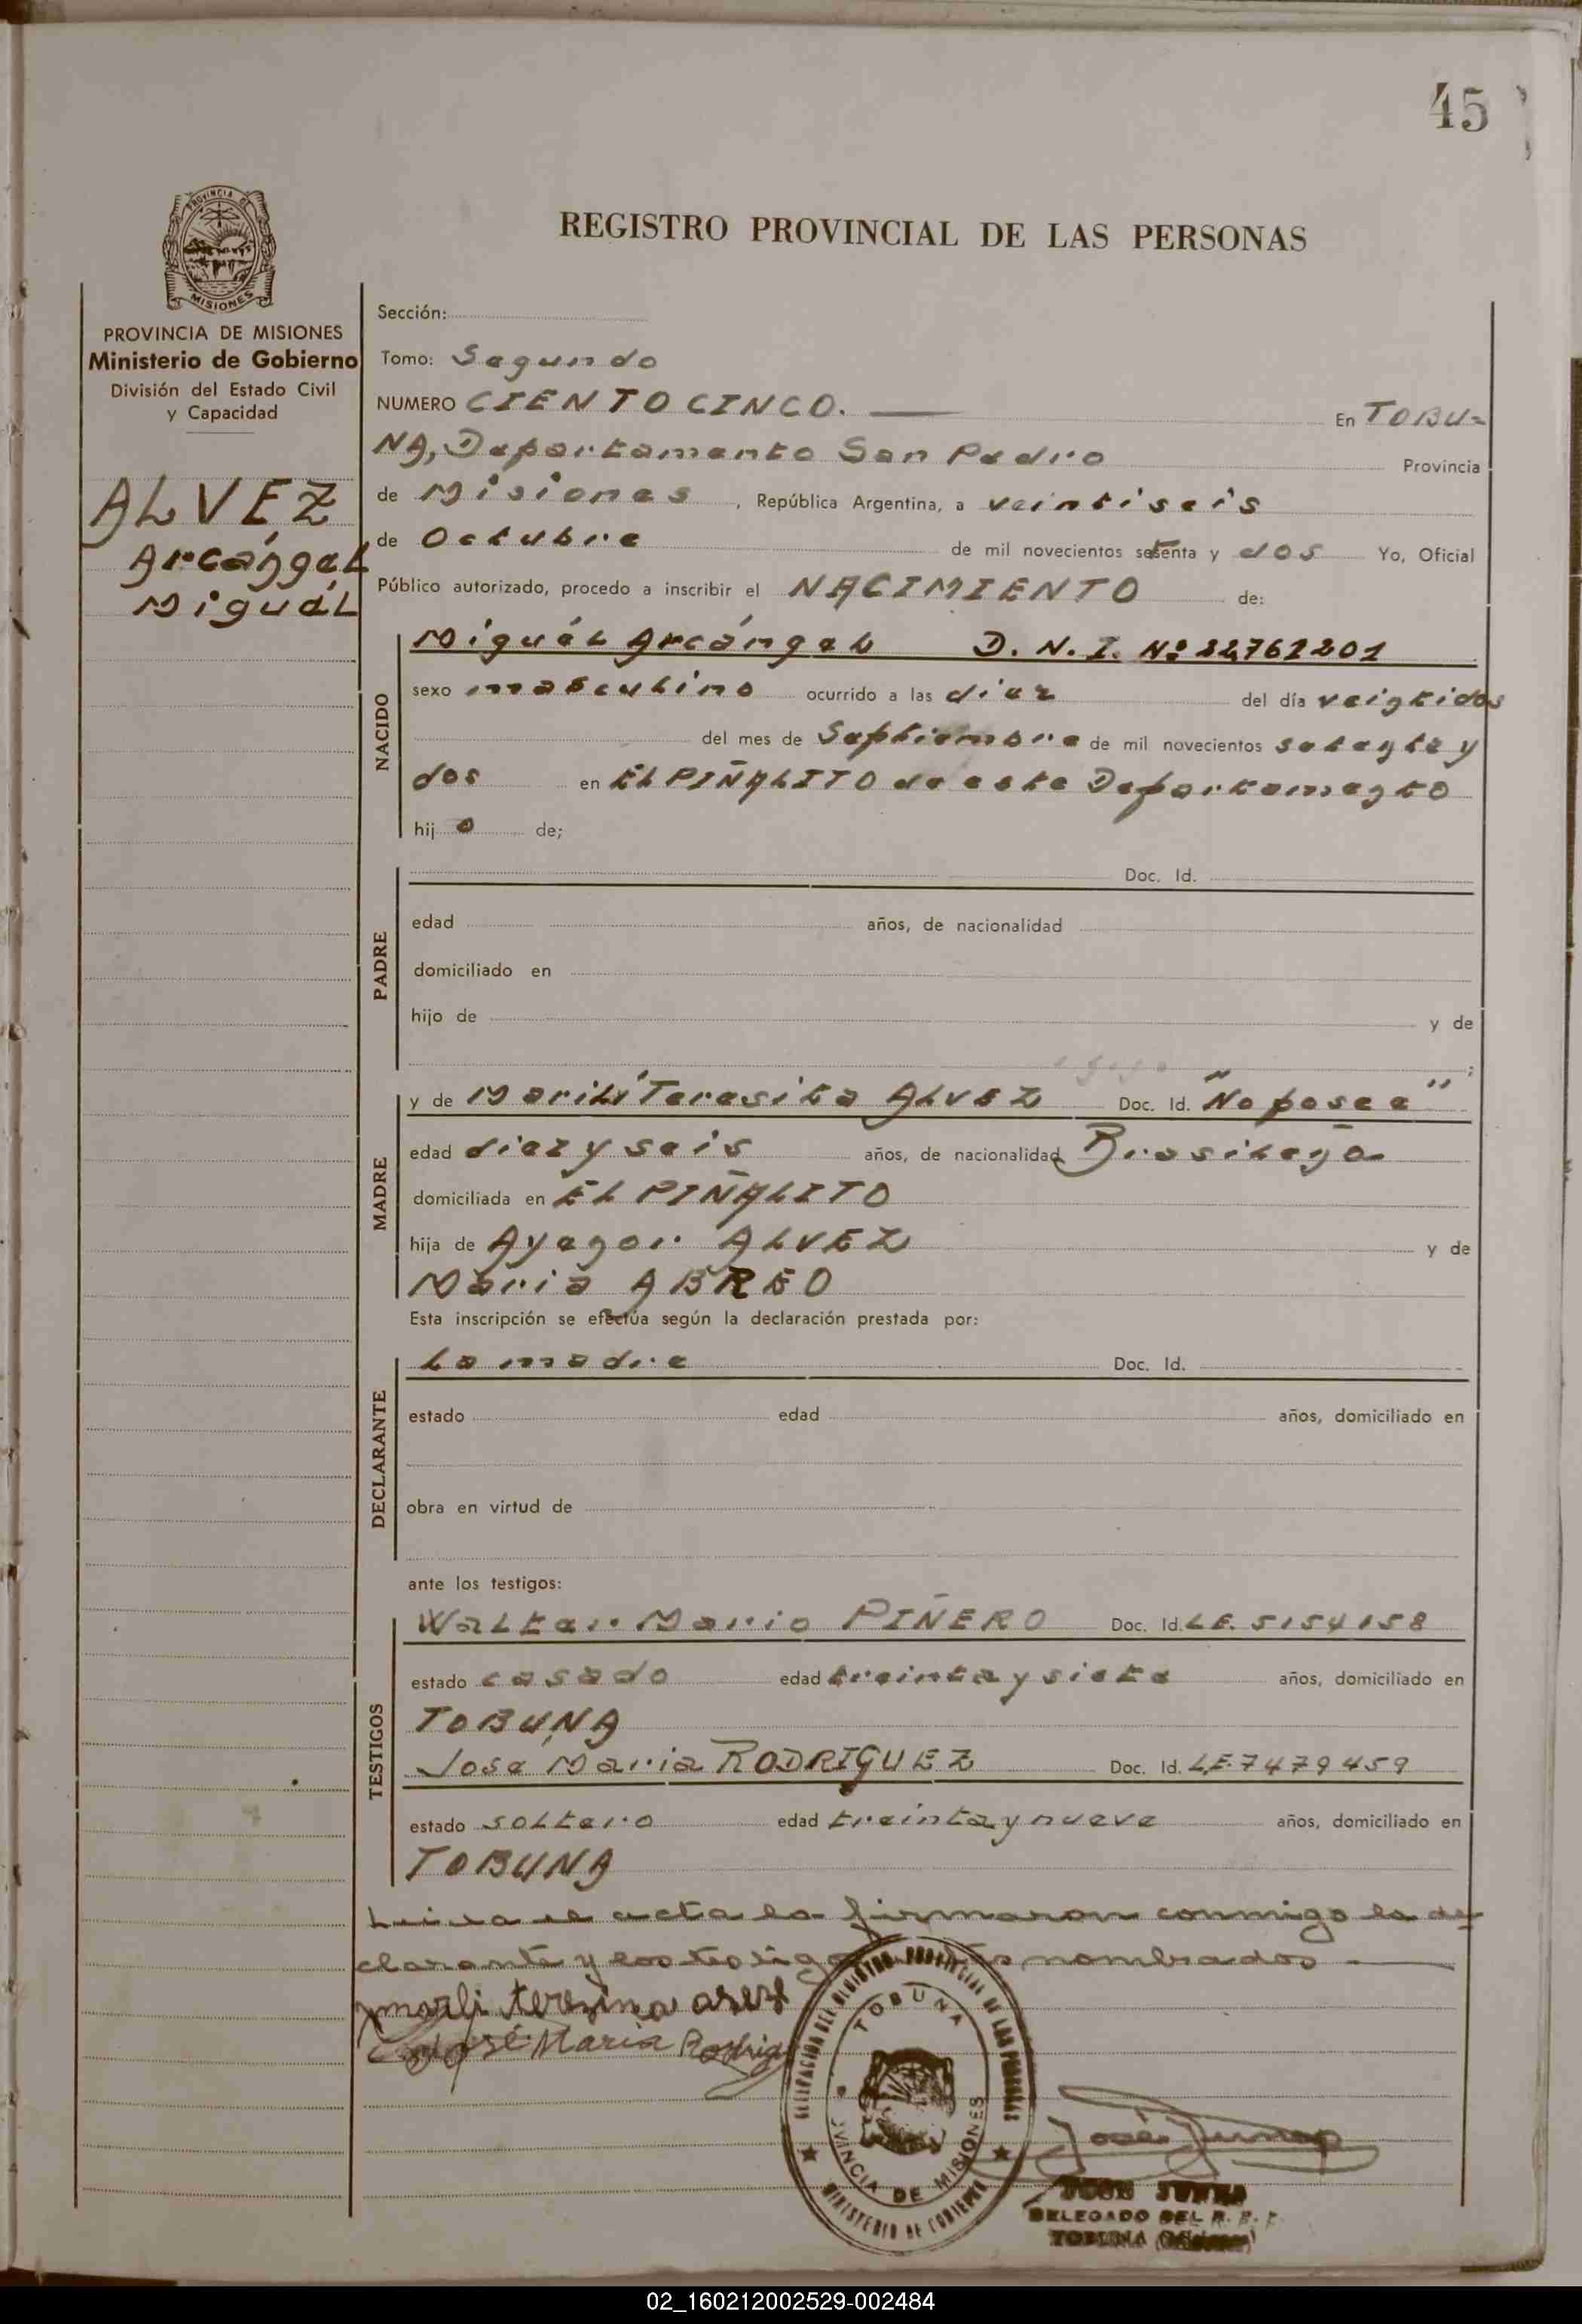 45
PROVINCIA DE
MISIONES
PROVINCIA DE MISIONES
Ministerio de Gobierno
División del Estado Civil
y Capacidad
ALVEZ
Arcángel
Miguél
REGISTRO PROVINCIAL DE LAS PERSONAS
Sección:
Tomo: Segundo
NUMERO CIENTO CINCO. — En TOBU=
NA, Departamento San Pedro Provincia
de Misiones, República Argentina, a veintiseis
de Octubre de mil novecientos setenta y dos Yo, Oficial
Público autorizado, procedo a inscribir el NACIMIENTO de:
NACIDO
Miguél Arcángel D. N. I. Nº 22761201
sexo masculino ocurrido a las diez del día veintidos
del mes de Septiembre de mil novecientos setenta y
dos en EL PIÑALITO de este Departamento
hijo de;
PADRE
Doc. Id.
edad años, de nacionalidad
domiciliado en
hijo de y de
;
MADRE
y de Marili Teresita ALVEZ Doc. Id. "No posee"
edad diez y seis años, de nacionalidad Brasileña
domiciliada en EL PIÑALITO
hija de ALVEZ y de
Maria ABREO
Esta inscripción se efectúa según la declaración prestada por:
DECLARANTE
La madre Doc. Id.
estado edad años, domiciliado en
obra en virtud de
ante los testigos:
TESTIGOS
Walter Mario PIÑERO Doc. Id. LE. 5154158
estado casado edad treinta y siete años, domiciliado en
TOBUNA
José Maria RODRIGUEZ Doc. Id. LE. 7479459
estado soltero edad treinta y nueve años, domiciliado en
TOBUNA
Leida el acta la firmaron conmigo la de
clarante y los testigos nombrados —
José Maria Rodrig
DELEGACION DEL REGISTRO PROVINCIAL DE LAS PERSONAS
TOBUNA
PROVINCIA DE MISIONES
MINISTERIO DE GOBIERNO
DELEGADO DEL R. P. P.
TOBUNA (Misiones)
02_160212002529-002484